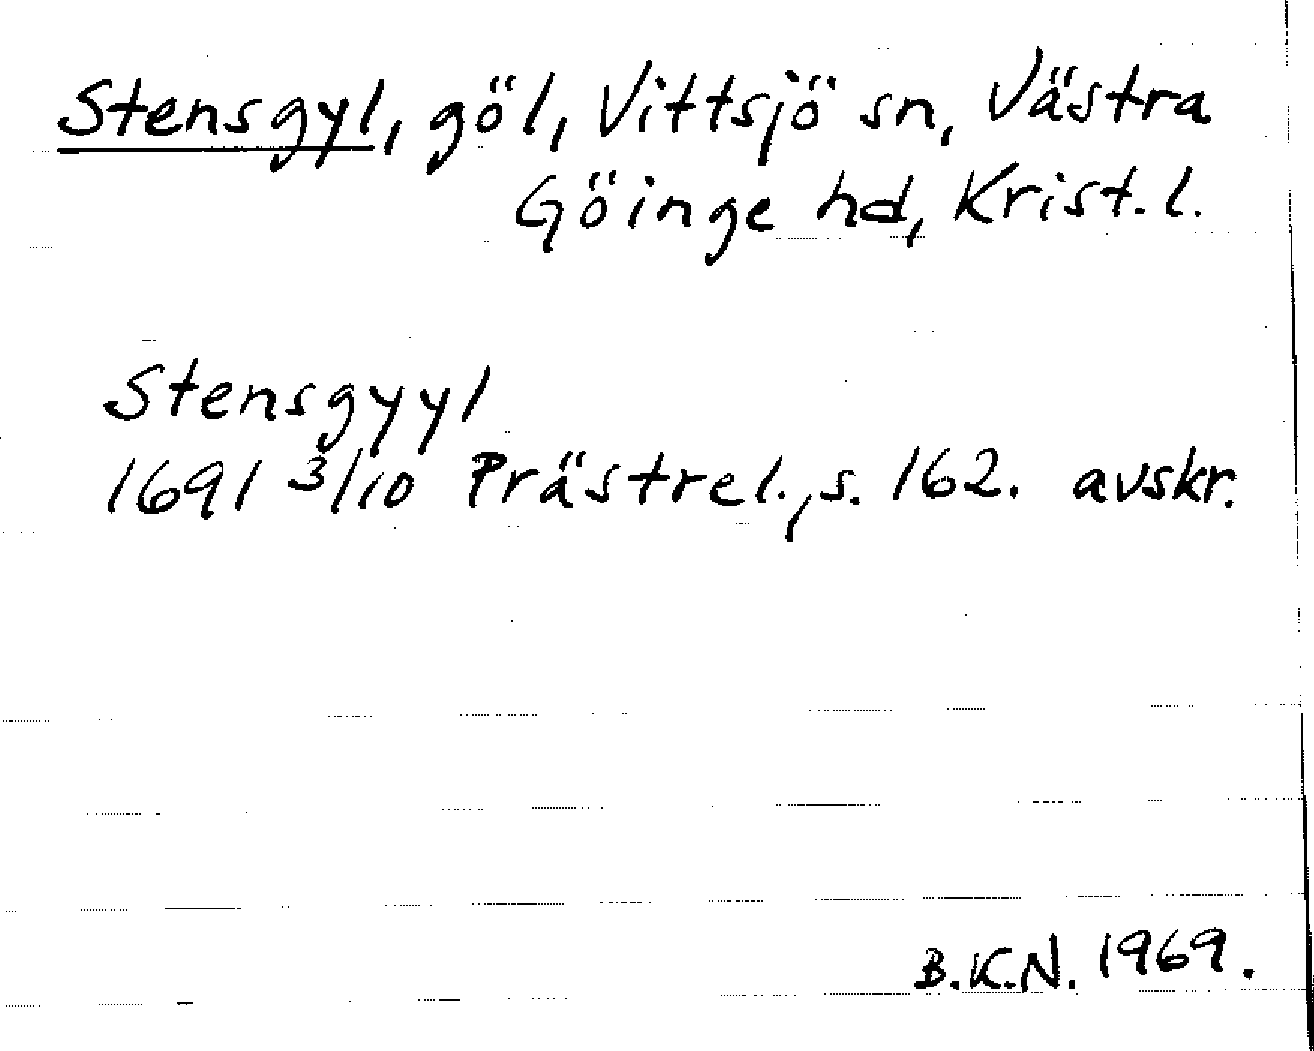 Stensgyl, göl, Vittsjö sn, Västra
Göinge hd, Krist. l.
Stensgyyl
1691 3/10 Prästrel., s. 162. avskr.
B.K.N. 1969.